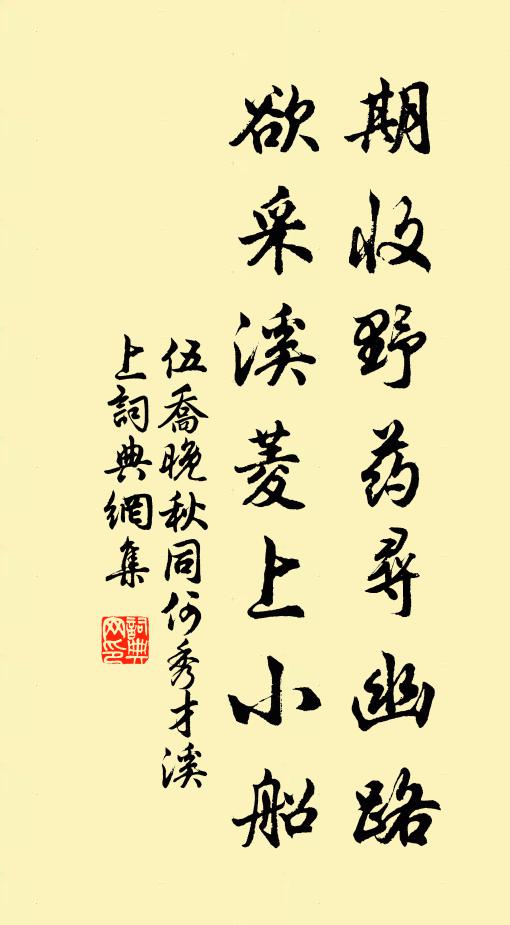 期收野药寻幽路
欲采溪菱上小船
伍喬晚秋同何秀才溪
上詞典網集
詞典網印